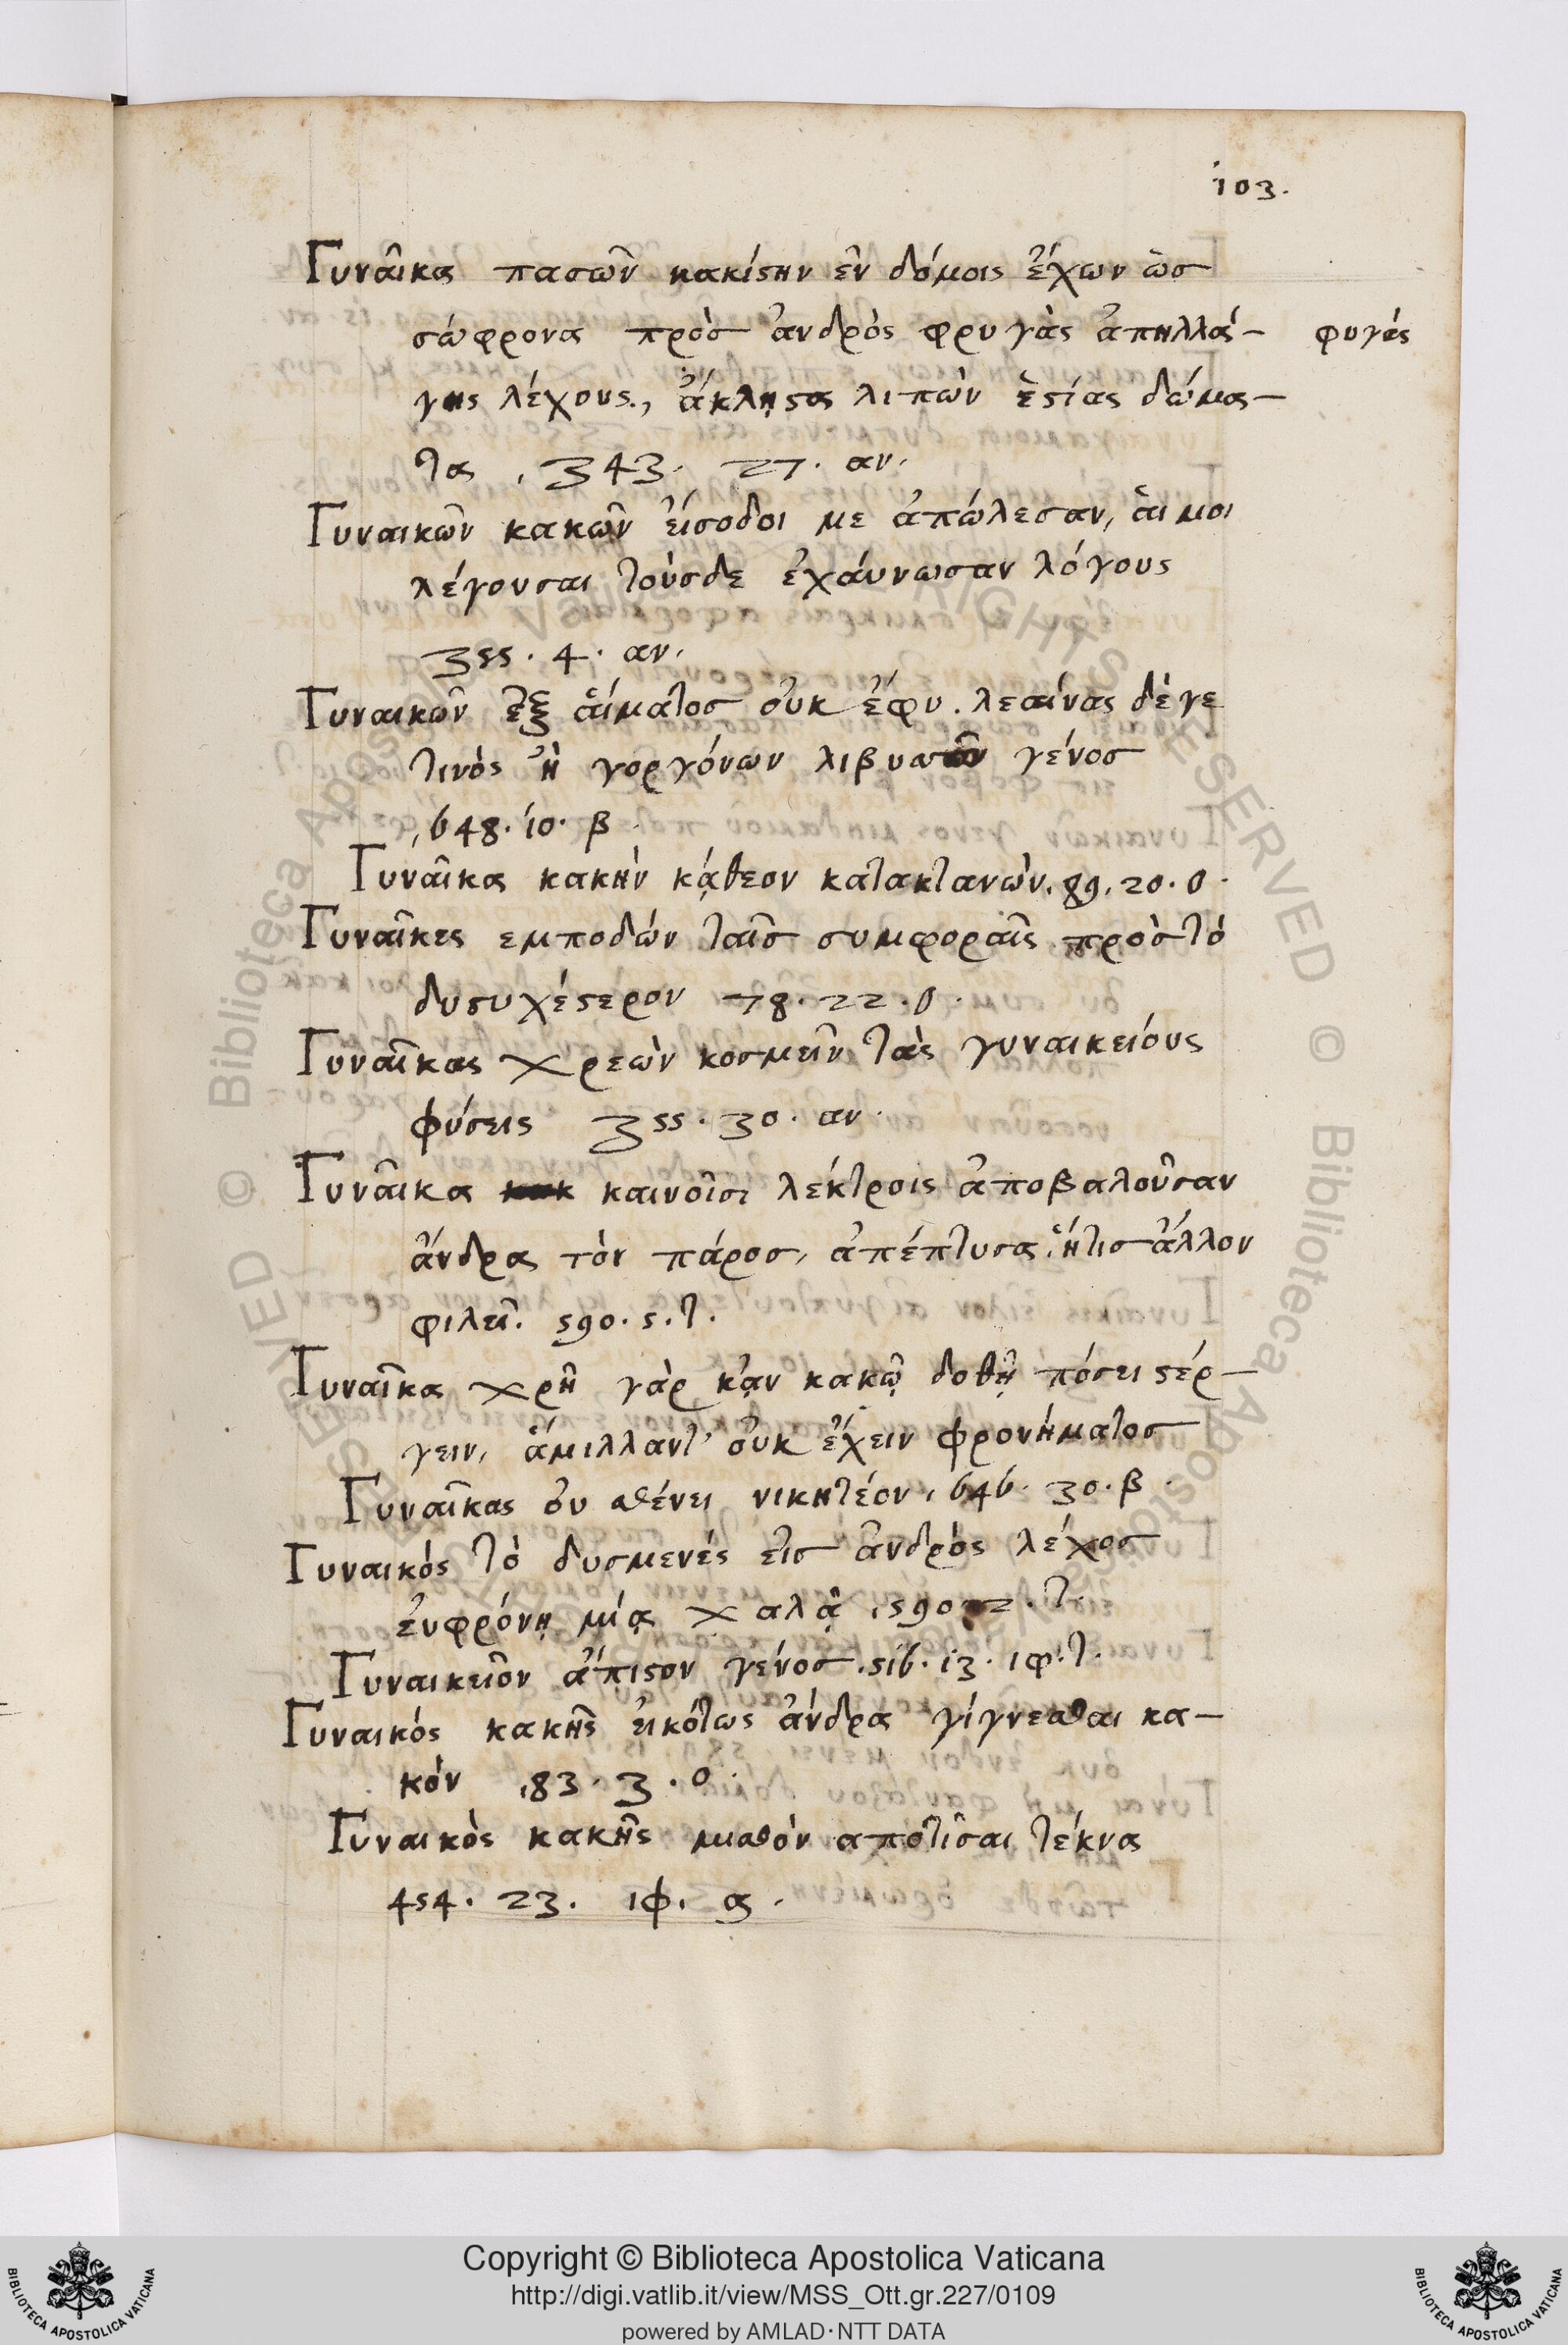 103.
Γυναῖκα πασῶν κακίϛην ἐν δόμοις ἔχων ὡσ
σώφρονα πρὸσ ἀνδρὸς φρυγὰς ἀπηλλά- φυγάς
γης λέχους., ἄκλῃϛα λιπὼν ἑϛίας δώμα-
τα , 343. 27. αν.
Γυναικῶν κακῶν εἴσοδοι με ἀπώλεσαν, ἅι μοι
λέγουσαι τούσδε ἐχάυνωσαν λόγους
355. 4. αν.
Γυναικῶν ἐξ ἅιματοσ ὀυκ ἔφυ. λεαίνας δέγε
τινὸς ἢ γοργόνων λιβυσῶν γένοσ
,648. 10. β
Γυναῖκα κακὴν κᾴθεον κατακτανών. 89. 20. 0.
Γυναῖκες εμποδών ταῖσ συμφοραῖς πρὸσ τὸ
δυϛυχέϛερον 78. 22. 0.
Γυναῖκας χρεὼν κοσμεῖν τὰς γυναικείους
φύσεις 355. 30. αν.
Γυναῖκα κακ καινοῖσι λέκτροις ἀποβαλοῦσαν
ἄνδρα τὸν πάροσ, ἀπέπτυσα. ἥτισ ἄλλον
φιλεῖ. 590. 5. τ.
Γυναῖκα χρῆ γὰρ κᾂν κακῷ δοθῇ πόσει ϛέρ-
γειν, ἅμιλλαντ' ὀυκ ἔχειν φρονήματοσ
Γυναῖκας ὀυ σθένει νικητέον, 646. 30. β.
Γυναικός τὸ δυσμενές εἰσ ἀνδρὸς λέχοσ
ἐυφρόνῃ μίᾳ χαλᾷ , 590. 2. τ.
Γυναικεῖον ἄπιϛον γένοσ. 516. 13. ιφ. τ.
Γυναικός κακῆς εἰκότως ἄνδρα γίγνεσθαι κα-
κὸν ,83. 3. 0.
Γυναικὸς κακῆς μισθὸν αποτῖσαι τέκνα
454. 23. ιφ. α.
Copyright © Biblioteca Apostolica Vaticana
http://digi.vatlib.it/view/MSS_Ott.gr.227/0109
powered by AMLAD·NTT DATA